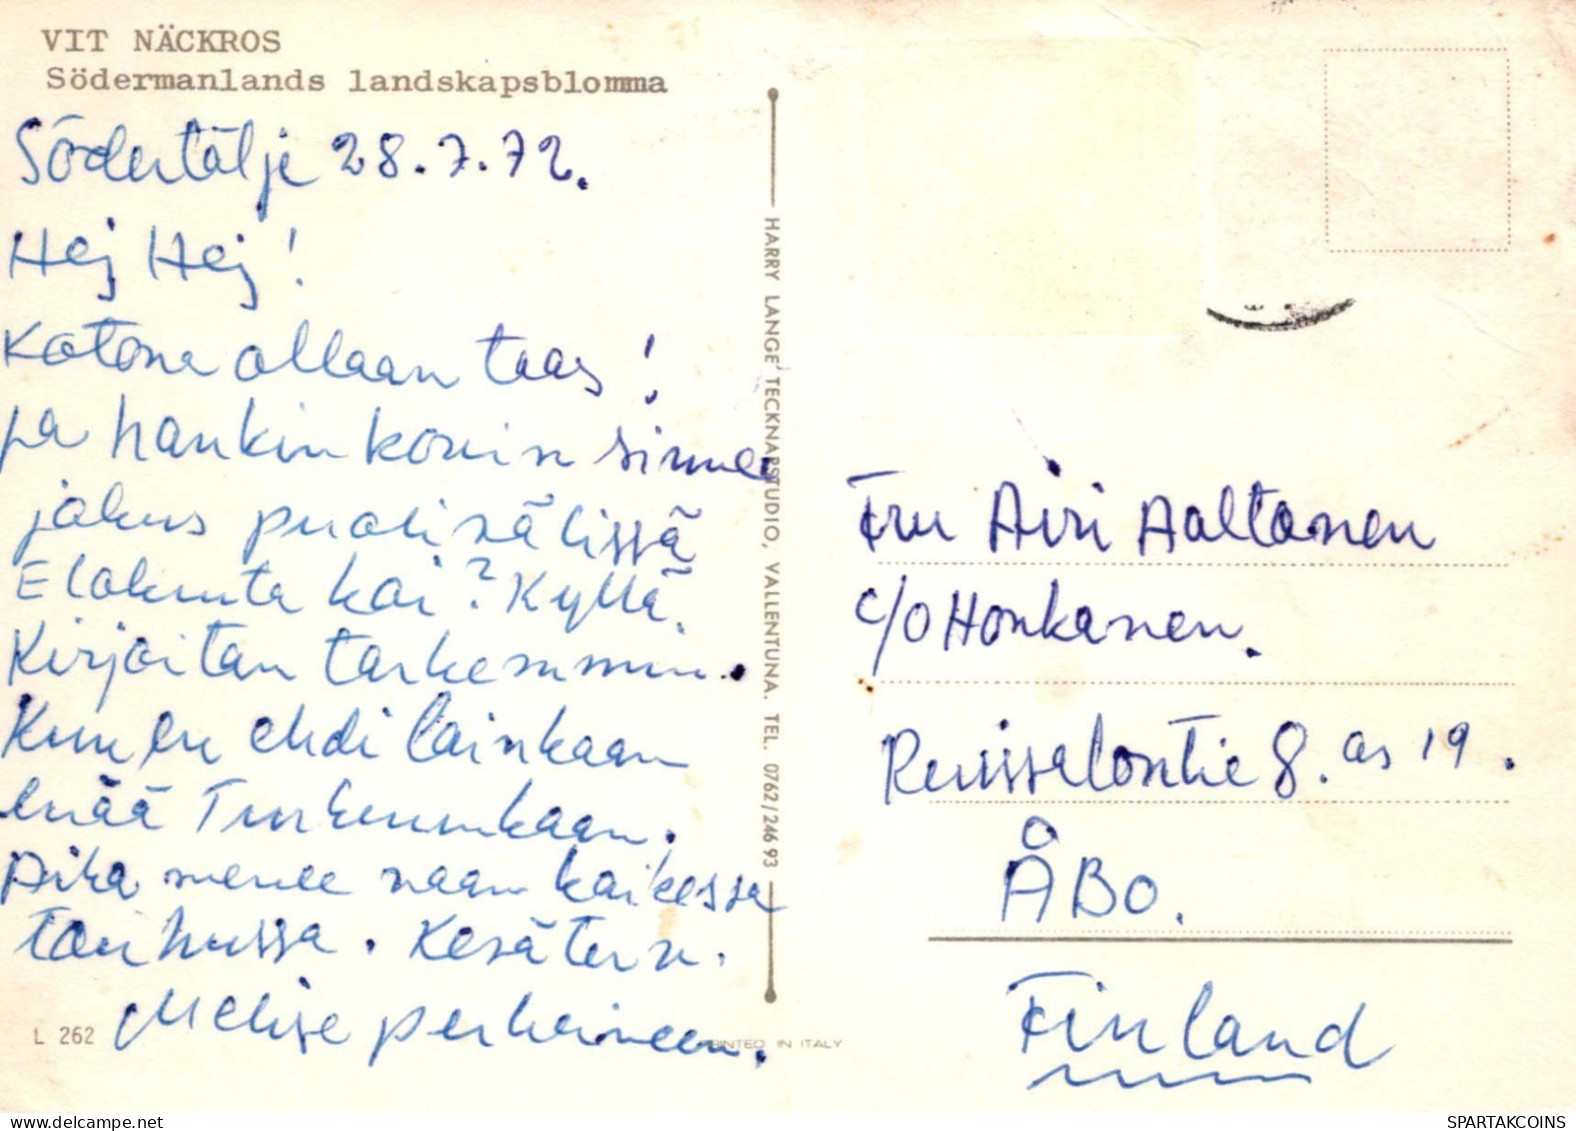 VIT NÄCKROS
Södermanlands landskapsblomma
Södertälje 28.7.72.
Hej Hej!
Kotona ollaan taas!
ja hankin kovin sinne
jokus puolivälissä
Elokuuta kai? Kyllä.
Kirjoitan tarkemmin.
Kun en ehdi lainkaan
enää Turkuunkaan.
Aika menee vaan kaikessa
touhussa. Kesäterv.
perheineen.
L 262
PRINTED IN ITALY
HARRY LANGE TECKNARSTUDIO, VALLENTUNA. TEL. 0762/246 93
Fru Airi Aaltonen
c/o Honkanen.
Ruissalontie 8. as 19.
ÅBO.
Finland
SPARTAKCOINS